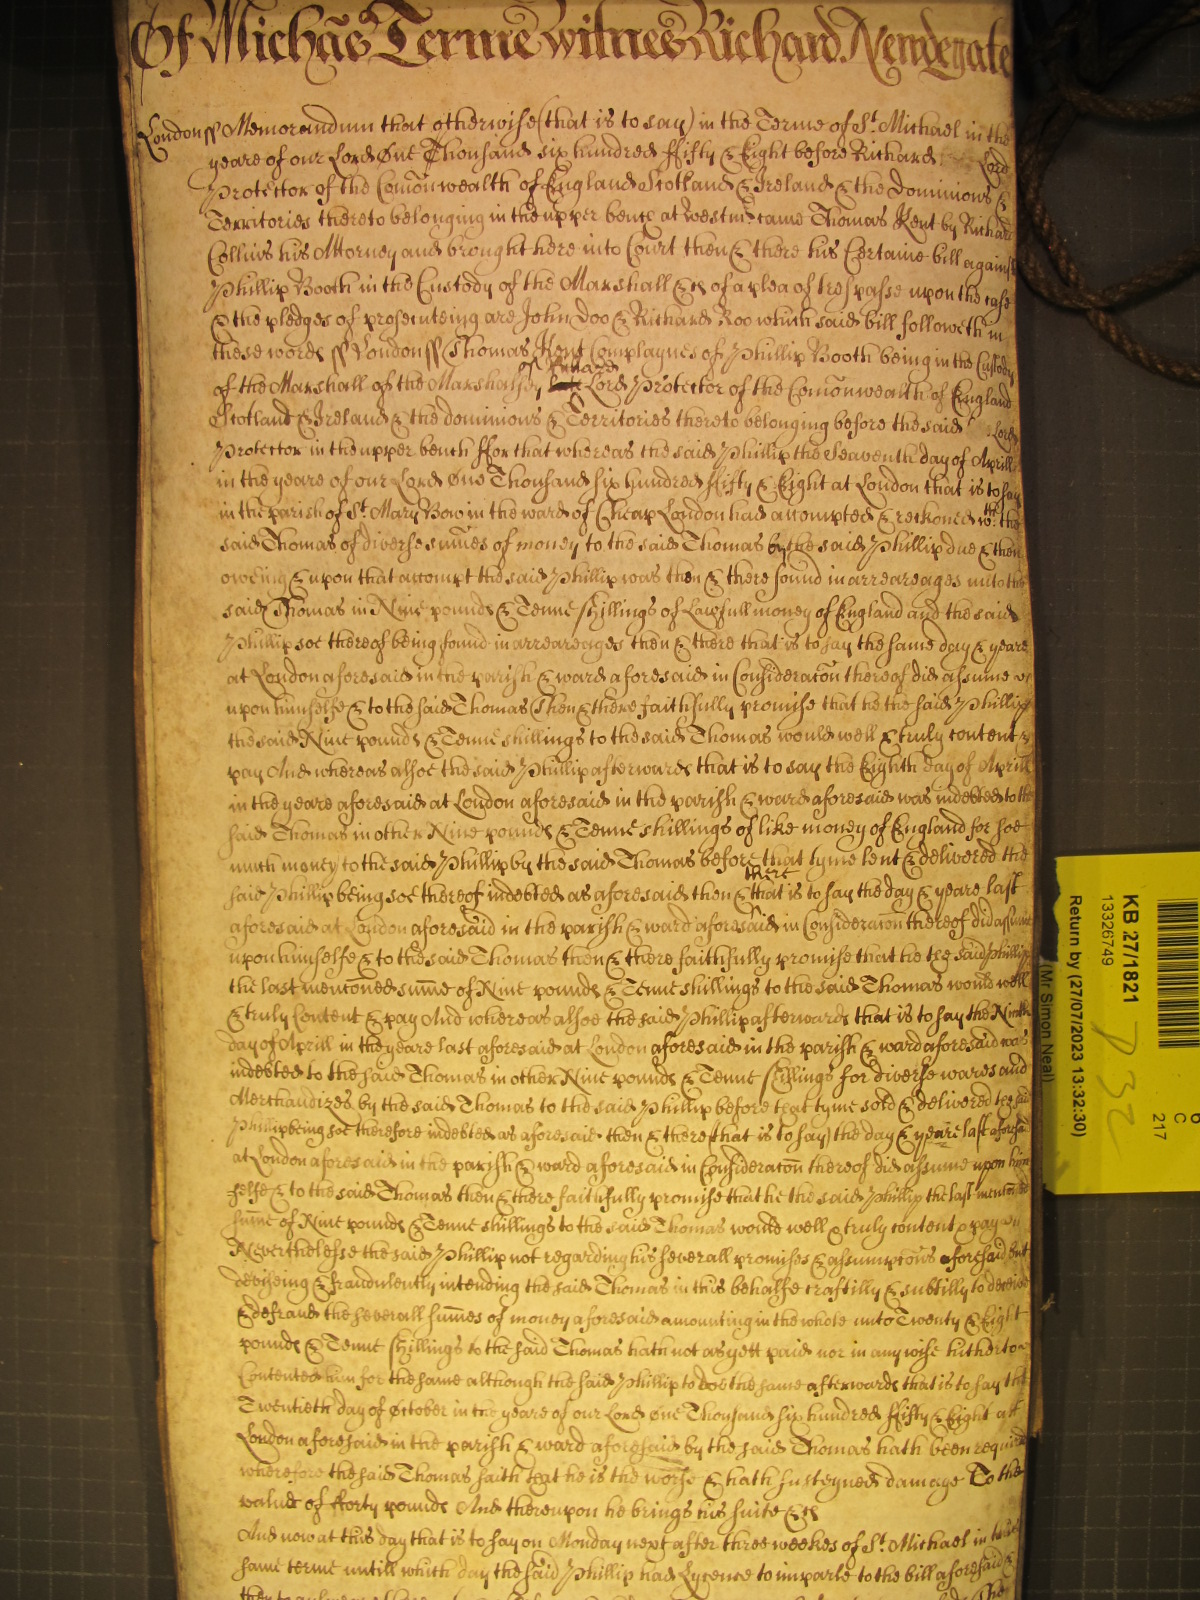 Of Michās Terme witnes Richard Newdegate
London ss Memorandum that otherwise (that is to say) in the Terme of St. Michael in the
yeare of our Lord One Thousand six hundred ffifty & Eight before Richard Lord
Protector of the Com̄onwealth of England Scotland & Ireland & the Dominions &
Territories thereto belonging in the upper bench at Westm̄ came Thomas Kent by Richard
Collins his Attorney and brought here into Court then & there his Certaine bill against
Phillip Booth in the Custody of the Marshall &c of a plea of trespasse upon the case
& the pledges of prosecuteing are John Doo & Richard Roo which said bill followeth in
these words ss London ss Thomas Kent Complaynes of Phillip Booth being in the Custody
of the Marshall of the Marshalsey of Richard Lord Protector of the Com̄onwealth of England
Scotland & Ireland & the dominions & Territories thereto belonging before the said Lord
Protector in the upper bench ffor that whereas the said Phillip the Seaventh day of Aprill
in the yeare of our Lord One Thousand six hundred ffifty & Eight at London that is to say
in the parish of St. Mary Bow in the ward of Cheap London had accompted & reckoned wth the
said Thomas of diverse sum̄es of money to the said Thomas by the said Phillip due & then
oweing & upon that accompt the said Phillip was then & there found in arreareages unto the
said Thomas in Nine pounds & Tenne shillings of Lawfull money of England and the said
Phillip soe thereof being found in arreareages then & there that is to say the same day & yeare
at London aforesaid in the parish & ward aforesaid in Consideracōn thereof did assume
upon himselfe & to the said Thomas then & there faithfully promise that he the said Phillip
the said Nine pounds & Tenne shillings to the said Thomas would well & truly content &
pay And whereas alsoe the said Phillip afterwards that is to say the Eighth day of Aprill
in the yeare aforesaid at London aforesaid in the parish & ward aforesaid was indebted to the
said Thomas in other Nine pounds & Tenne shillings of like money of England for soe
much money to the said Phillip by the said Thomas before that tyme lent & delivered the
said Phillip being soe thereof indebted as aforesaid then & there that is to say the day & yeare last
aforesaid at London aforesaid in the parish & ward aforesaid in Consideracōn thereof did assume
upon himselfe & to the said Thomas then & there faithfully promise that he the said Phillip
the last mentioned sum̄e of Nine pounds & Tenne shillings to the said Thomas would well
& truly Content & pay And whereas alsoe the said Phillip afterwards that is to say the Ninth
day of Aprill in the yeare last aforesaid at London aforesaid in the parish & ward aforesaid was
indebted to the said Thomas in other Nine pounds & Tenne shillings for diverse wares and
Merchandizes by the said Thomas to the said Phillip before that tyme sold & delivered the said
Phillip being soe therefore indebted as aforesaid then & there (that is to say) the day & yeare last aforesaid
at London aforesaid in the parish & ward aforesaid in Consideracōn thereof did assume upon him
selfe & to the said Thomas then & there faithfully promise that he the said Phillip the last mentioned
sum̄e of Nine pounds & Tenne shillings to the said Thomas would well & truly content & pay
Neverthelesse the said Phillip not regarding his severall promises & assumpcōns aforesaid but
deviseing & fraudulently intending the said Thomas in this behalfe craftilly & subtilly to deceive
& defraud the severall sum̄es of money aforesaid amounting in the whole unto Twenty & Eight
pounds & Tenne shillings to the said Thomas hath not as yett paid nor in any wise hitherto
Contented him for the same although the said Phillip to doe the same afterwards that is to say the
Twentieth day of October in the yeare of our Lord One Thousand six hundred ffifty & Eight att
London aforesaid in the parish & ward aforesaid by the said Thomas hath been required
wherefore the said Thomas saith that he is the worse & hath susteyned damage To the
value of fforty pounds And thereupon he brings his suite &c
And now at this day that is to say on Monday next after three weekes of St. Michael in
same terme untill which day the said Phillip had Lycence to imparle to the bill aforesaid &
KB 27/1821
13326749
Return by (27/07/2023 13:32:30)
(Mr Simon Neal)
6
C
217